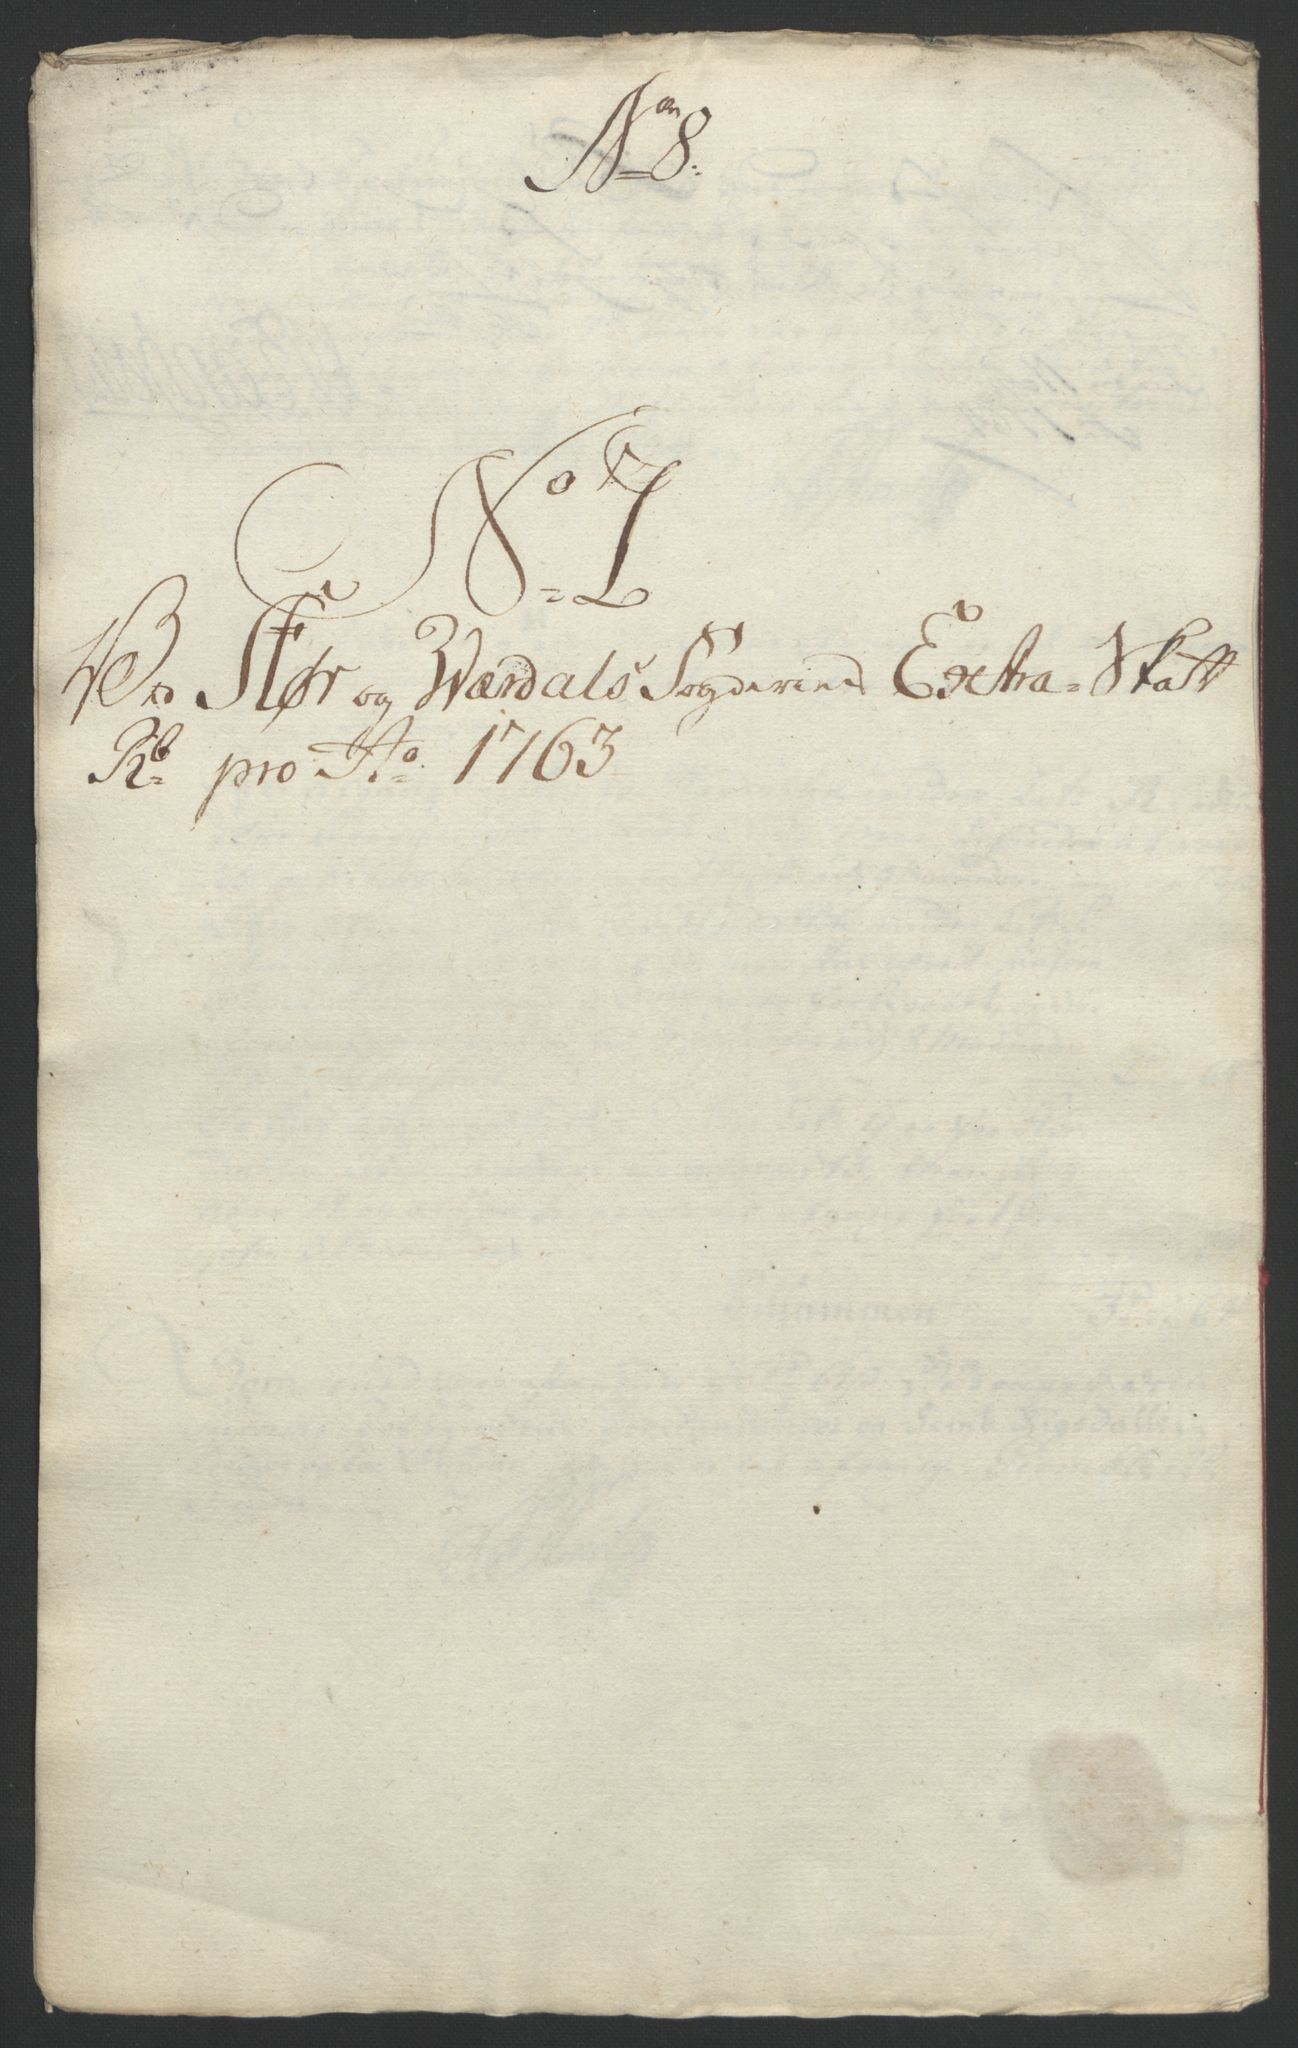 No 8.
No 1
Stør og Wærdals Fogderies Extra-Skatt
pro Ao 1763